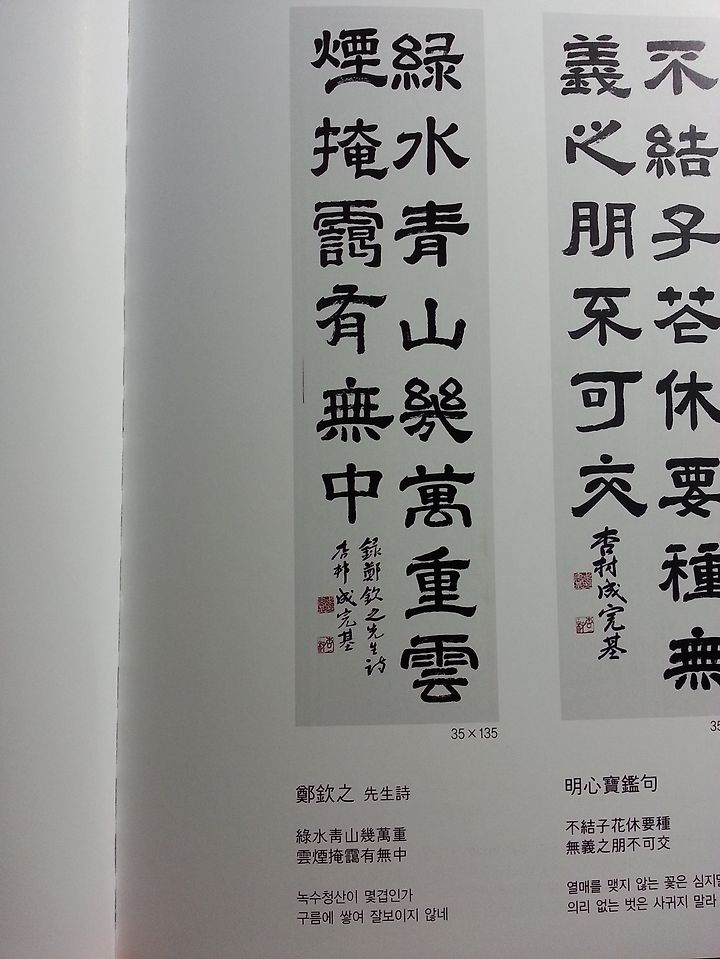 綠水青山幾萬重雲
煙掩靄有無中
錄鄭欽之先生詩
杏邨成完基
35×135
鄭欽之 先生詩
綠水靑山幾萬重
雲煙掩靄有無中
녹수청산이 몇겹인가
구름에 쌓여 잘보이지 않네
不結子花休要種無
義之朋不可交
杏村成完基
35
明心寶鑑句
不結子花休要種
無義之朋不可交
열매를 맺지 않는 꽃은
의리 없는 벗은 사귀지 말라